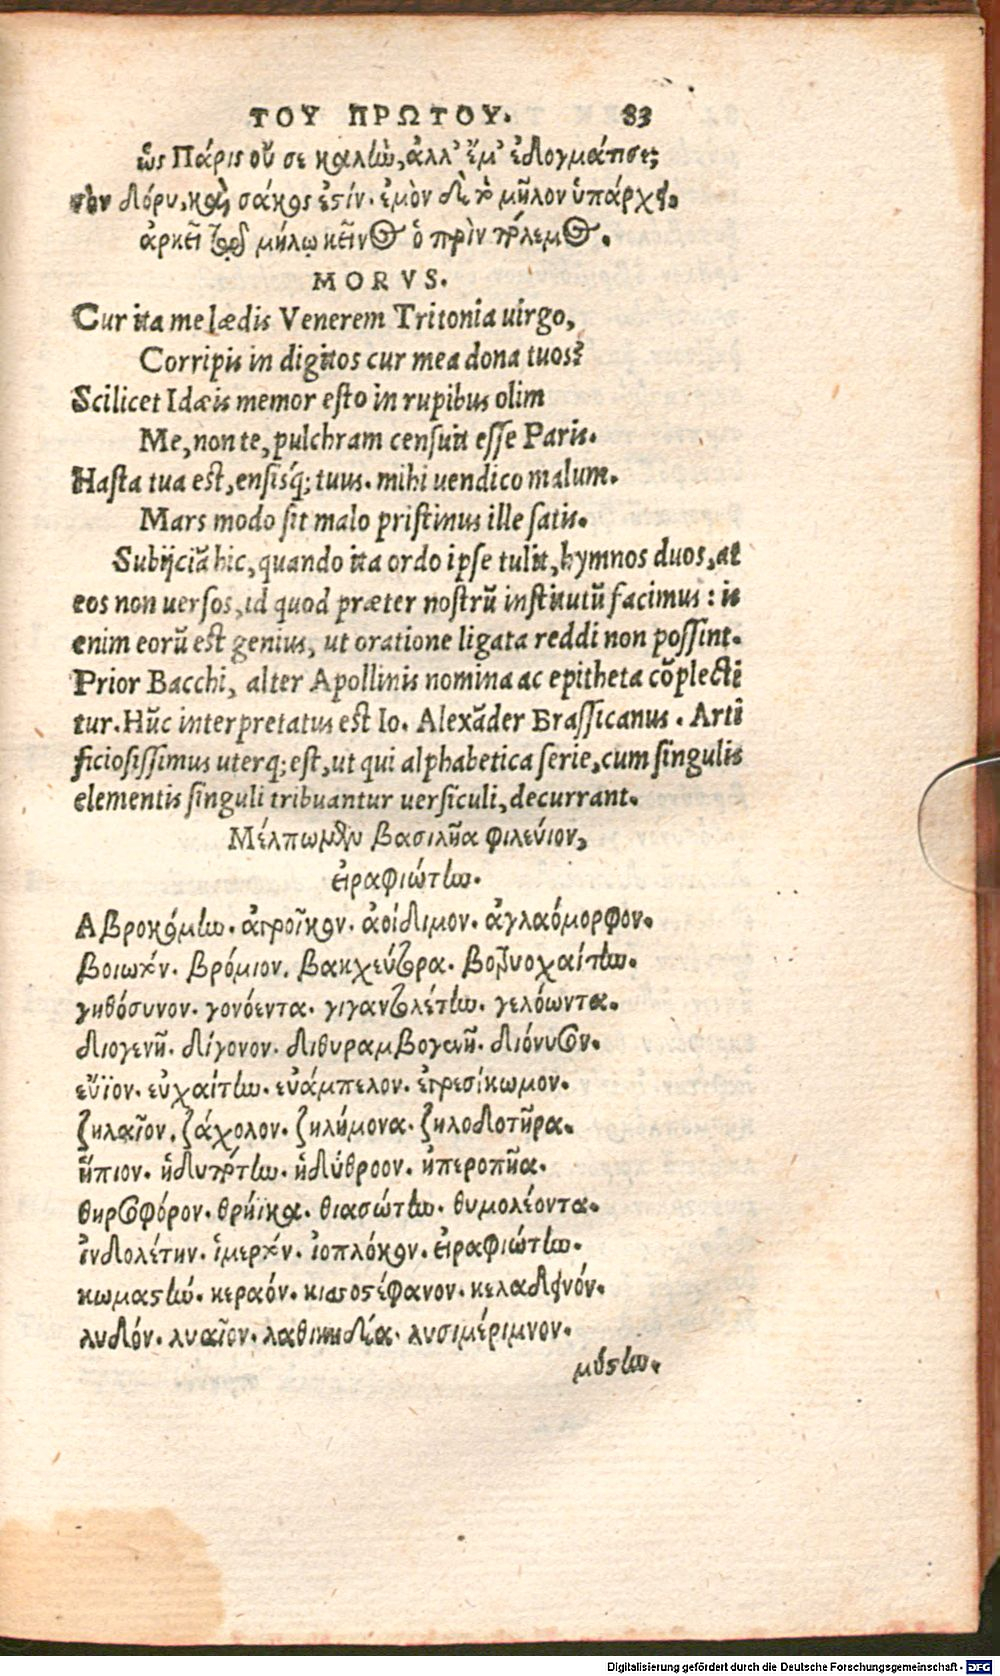 ΤΟΥ ΠΡΩΤΟΥ. 83
ὡς Πάρις οὔ σε καλὴν, ἀλλ' ἔμ' ἐδογμάτισε;
σὸν δόρυ, καὶ σάκος ἐστίν. ἐμὸν δὲ τὸ μῆλον ὑπάρχει.
ἀρκεῖ τῷδε μήλῳ κεῖνος ὁ πρὶν πόλεμος.
MORVS.
Cur ita me lædis Venerem Tritonia uirgo,
Corripis in digitos cur mea dona tuos?
Scilicet Idæis memor esto in rupibus olim
Me, non te, pulchram censuit esse Paris.
Hasta tua est, ensisq́; tuus. mihi uendico malum.
Mars modo sit malo pristinus ille satis.
Subijciā hic, quando ita ordo ipse tulit, hymnos duos, at
eos non uersos, id quod præter nostrū institutū facimus: is
enim eorū est genius, ut oratione ligata reddi non possint.
Prior Bacchi, alter Apollinis nomina ac epitheta cōplectī
tur. Hūc interpretatus est Io. Alexāder Brassicanus. Artī
ficiosissimus uterq; est, ut qui alphabetica serie, cum singulis
elementis singuli tribuantur uersiculi, decurrant.
Μέλπωμεν βασιλῆα φιλεύιον,
εἰραφιώτην.
Αβροκόμην. ἀγροῖκον. ἀοίδιμον. ἀγλαόμορφον.
βοιωτόν. βρόμιον. βακχεύτορα. βοτρυοχαίτην.
γηθόσυνον. γονόεντα. γιγαντολέτην. γελόωντα.
διογενῆ. δίγονον. διθυραμβογενῆ. διόνυσον.
εὔϊον. εὐχαίτην. εὐάμπελον. ἐγρεσίκωμον.
ζηλαῖον. ζάχολον. ζηλήμονα. ζηλοδοτῆρα.
ἤπιον. ἡδυπότην. ἡδύθροον. ἠπεροπῆα.
θηροφόρον. θρήϊκα. θιασώτην. θυμολέοντα.
ἰνδολέτην. ἱμερτόν. ἰοπλόκον. εἰραφιώτην.
κωμαστήν. κεραόν. κισσοστέφανον. κελαδεινόν.
λυδόν. λυαῖον. λαθικηδέα. λυσιμέριμνον.
μύστην.
Digitalisierung gefördert durch die Deutsche Forschungsgemeinschaft - DFG